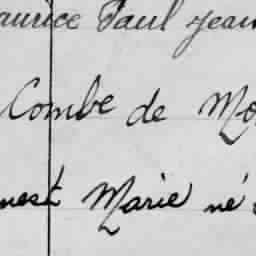 aurice Paul Jean
Combe de Mo
nest Marie né